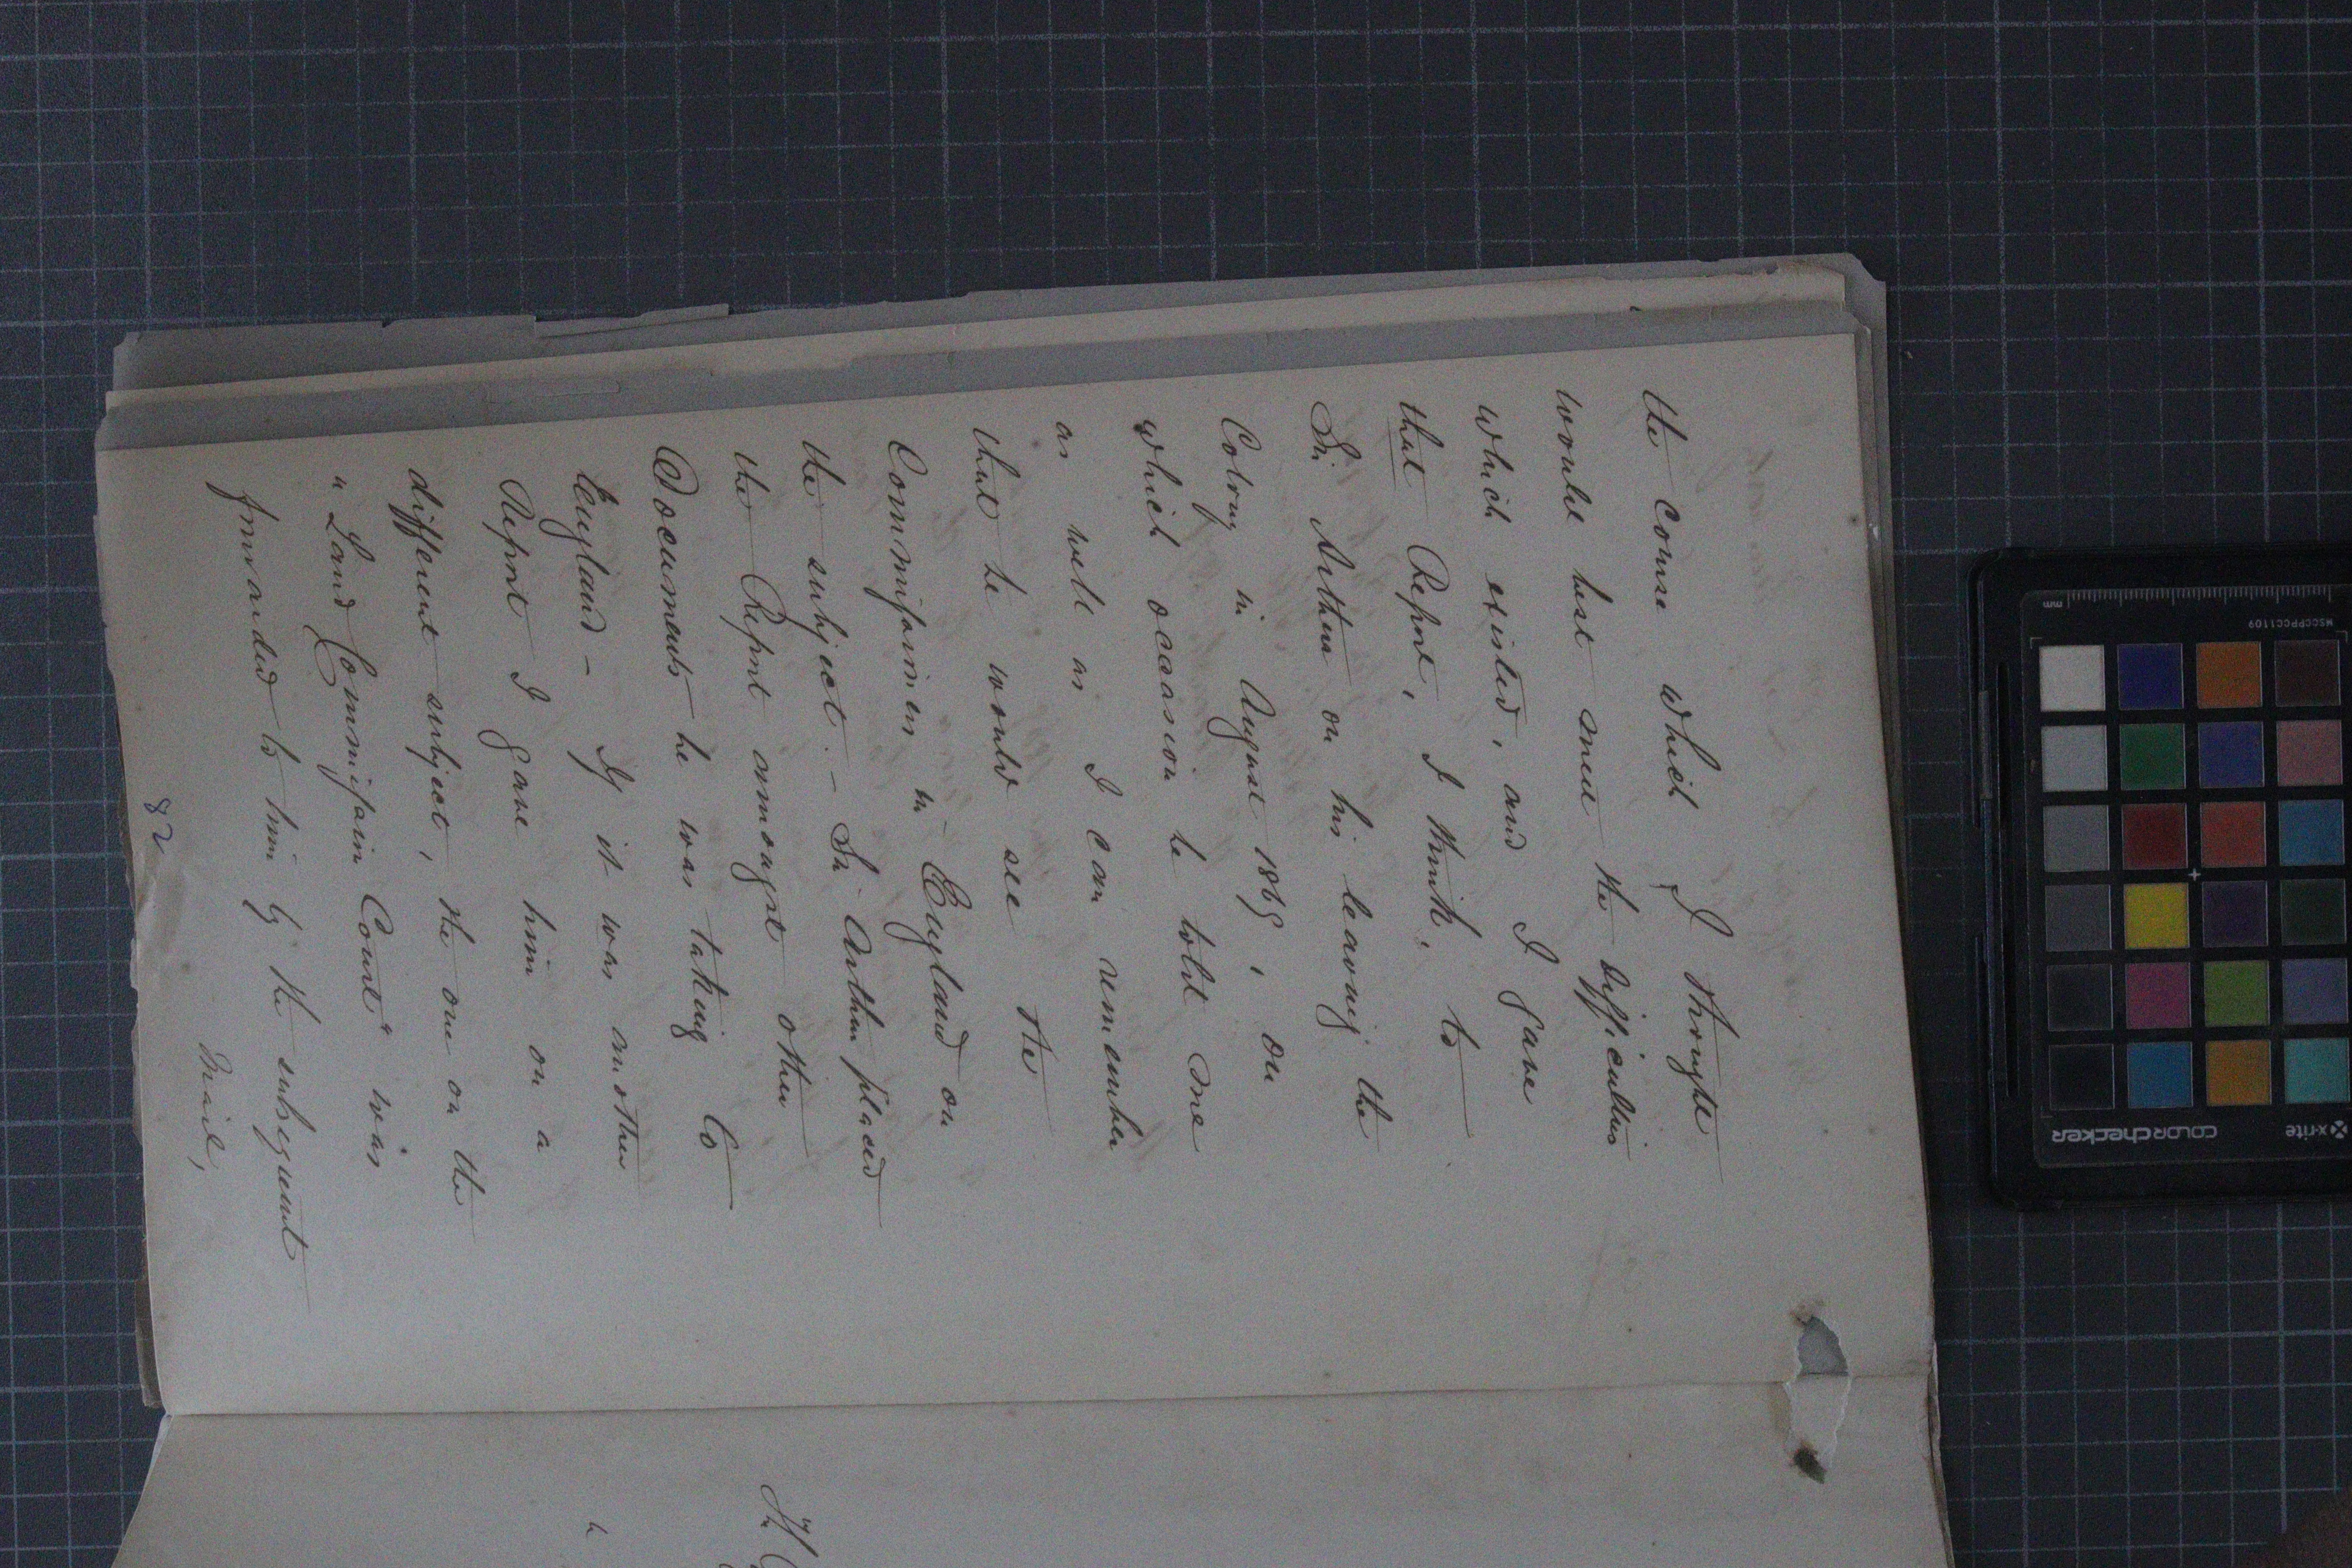 the course which I thought
would best meet the difficulties
which existed, and I gave
that Report, I think, to
Sir Arthur on his leaving the
Colony in August 1865, on
which occasion he told me
as well as I can remember
that he would see the
Commissioners in England on
the subject. - Sir Arthur placed
the Report amongst other
Documents he was taking to
England - If it was another
Report I gave him on a
different subject, the one on the
"Land Commission Court" was
forwarded to him by the subsequent
Mail,
82
mm
MSCCPPCC1109
x-rite
colorchecker